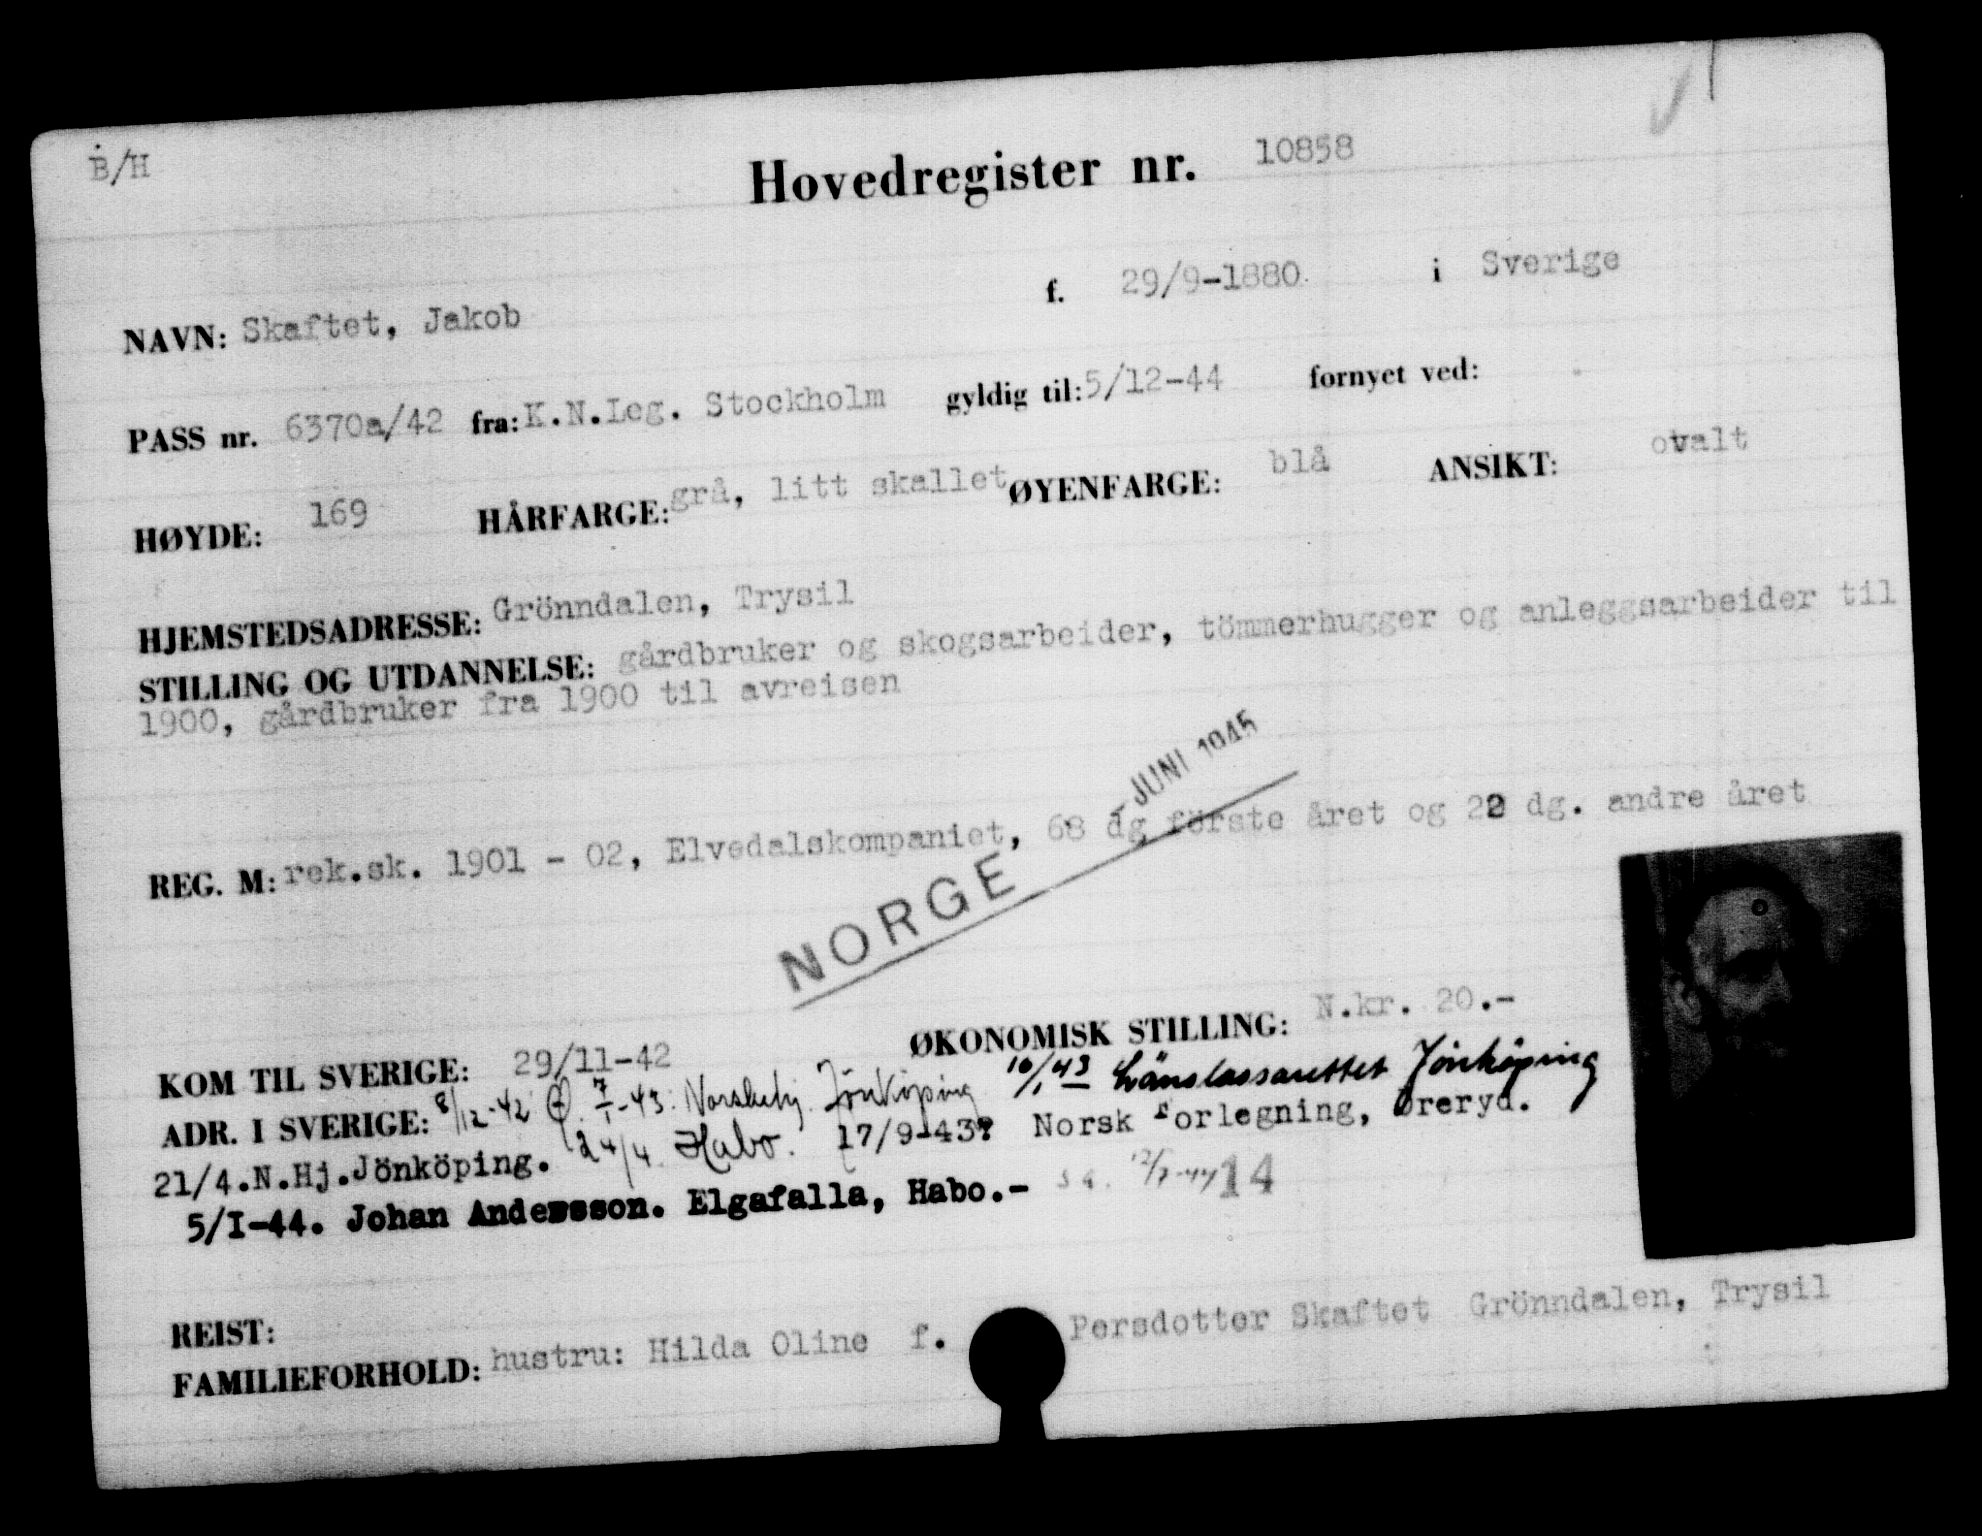 B/H
Hovedregister nr. 10858
NAVN: Skaftet, Jakob f. 29/9-1880. i Sverige
PASS nr. 6370a/42 fra: K.N.Leg. Stockholm gyldig til: 5/12-44 fornyet ved:
HØYDE: 169 HÅRFARGE: grå, litt skallet ØYENFARGE: blå ANSIKT: ovalt
HJEMSTEDSADRESSE: Grönndalen, Trysil
STILLING OG UTDANNELSE: gårdbruker og skogsarbeider, tömmerhugger og anleggsarbeider til
1900, gårdbruker fra 1900 til avreisen
- JUNI 1945
REG. M: rek.sk. 1901 - 02, Elvedalskompaniet, 68 dg förste året og 22 dg. andre året
NORGE
KOM TIL SVERIGE: 29/11-42 ØKONOMISK STILLING: N.kr. 20.-
ADR. I SVERIGE: 8/12-42 7/1-43: Norskehj. Jönköping 16/1 43 Länslassarettet Jönköping
21/4.N.Hj.Jönköping. 24/4. Habo. 17/9-43? Norsk Forlegning, Øreryd.
5/I-44. Johan Andersson. Elgafalla, Habo.- 12/7-44 14
REIST:
FAMILIEFORHOLD: hustru: Hilda Oline f. Persdotter Skaftet Grönndalen, Trysil